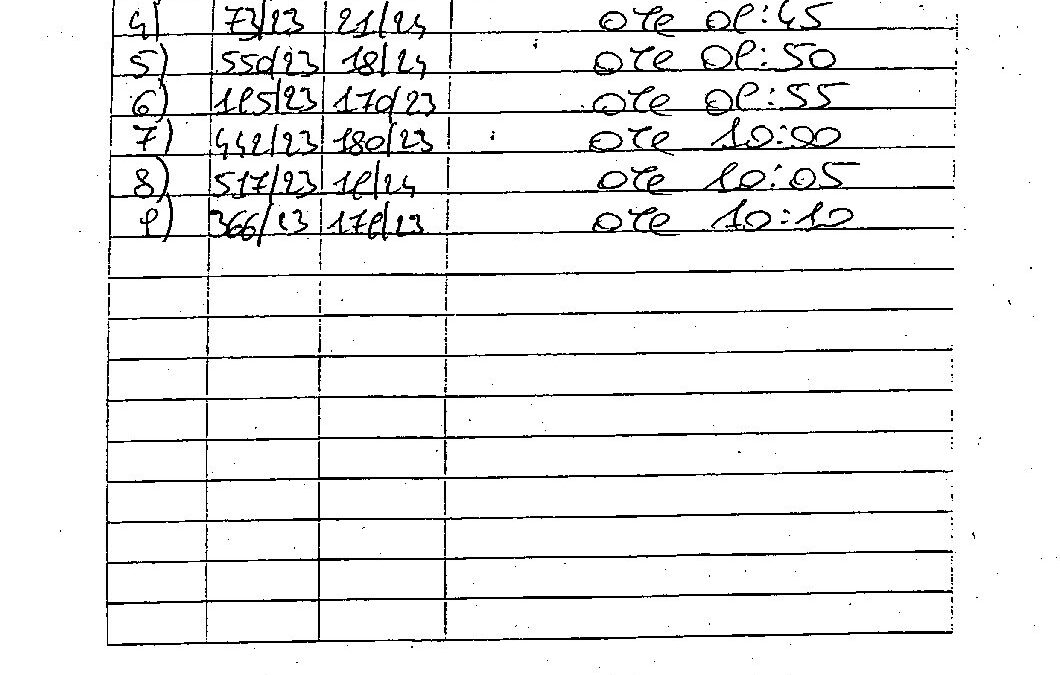 4) 73/23 21/24 ore 09:45
5) 550/23 18/24 ore 09:50
6) 195/23 170/23 ore 09:55
7) 442/23 180/23 ore 10:00
8) 517/23 19/24 ore 10:05
9) 366/23 179/23 ore 10:10